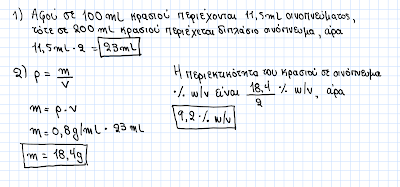 1) Αφού σε 100 mL κρασιού περιέχονται 11,5mL οινοπνεύματος,
τότε σε 200 mL κρασιού περιέχεται διπλάσιο οινόπνευμα, άρα
11,5mL · 2 = 23mL
2) ρ = m/V
m = ρ · V
m = 0,8g/mL · 23 mL
m = 18,4g
Η περιεκτικότητα του κρασιού σε οινόπνευμα
% w/v είναι 18,4/2 % w/v, άρα
9,2 % w/v